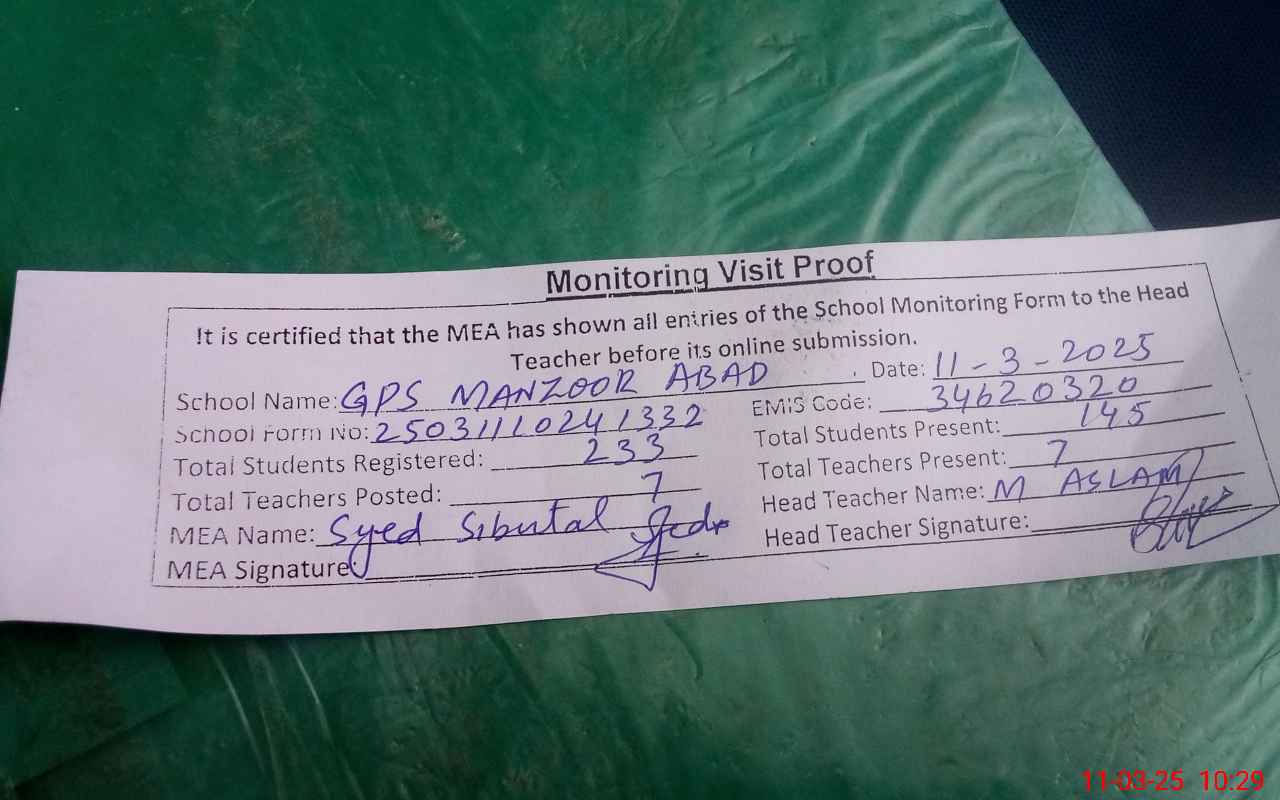 Monitoring Visit Proof
It is certified that the MEA has shown all entries of the School Monitoring Form to the Head
Teacher before its online submission.
School Name: GPS MANZOOR ABAD Date: 11-3-2025
School Form No: 25031110241332 EMIS Code: 34620320
Total Students Registered: 233 Total Students Present: 145
Total Teachers Posted: 7 Total Teachers Present: 7
MEA Name: Syed Head Teacher Name: M ASLAM
MEA Signature: Head Teacher Signature:
11-03-25 10:29